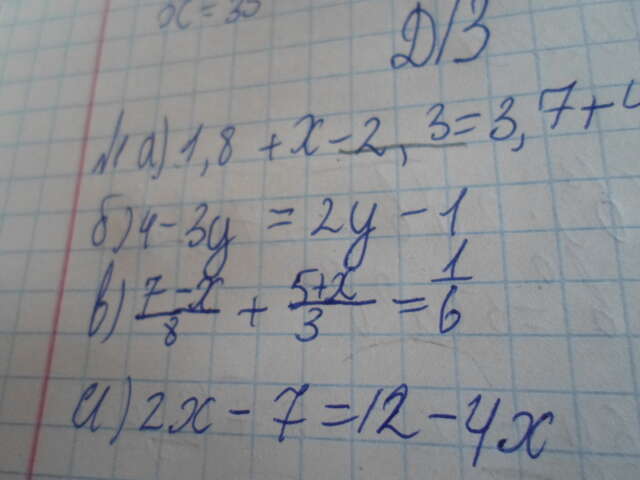 x = 35
Д/З
№1 а) 1,8 + x - 2,3 = 3,7 + 4
б) 4 - 3y = 2y - 1
в) 7-x/8 + 5+x/3 = 1/6
а) 2x - 7 = 12 - 4x